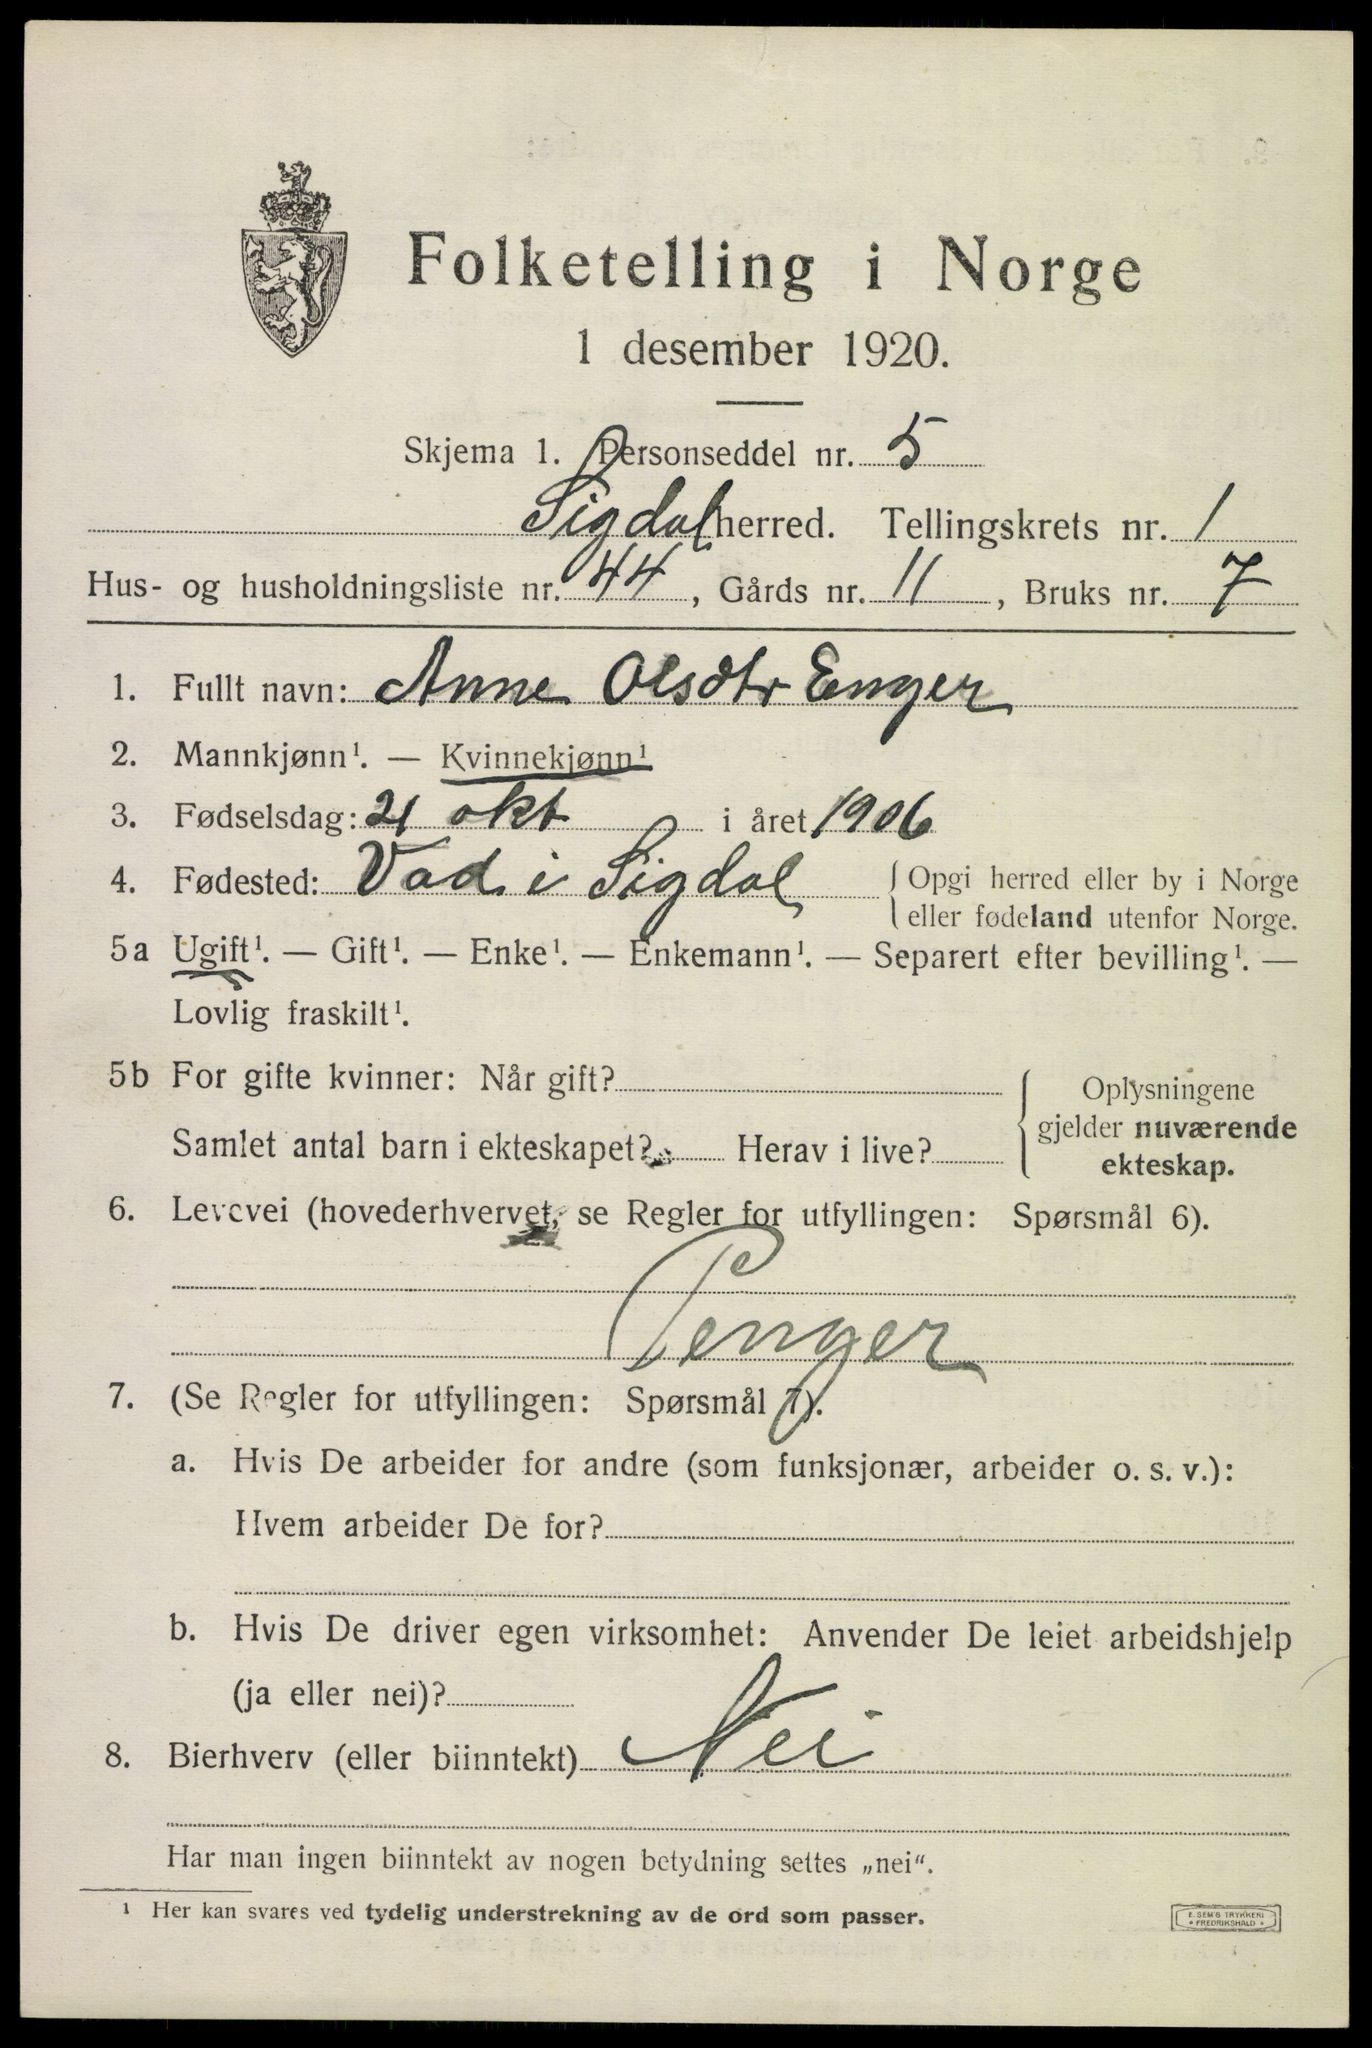 Folketelling i Norge
1 desember 1920.
Skjema 1. Personseddel nr. 5
Sigdal herred. Tellingskrets nr. 1
Hus- og husholdningsliste nr. 44, Gårds nr. 11, Bruks nr. 7
1. Fullt navn: Anne Olsdtr Enger
2. Mannkjønn¹. — Kvinnekjønn¹
3. Fødselsdag: 21 okt i året 1906
4. Fødested: Vad i Sigdal { Opgi herred eller by i Norge
eller fødeland utenfor Norge.
5a Ugift¹. — Gift¹. — Enke¹. — Enkemann¹. — Separert efter bevilling¹. —
Lovlig fraskilt¹.
5b For gifte kvinner: Når gift?
Samlet antal barn i ekteskapet? Herav i live?
{ Oplysningene
gjelder nuværende
ekteskap.
6. Levevei (hovederhvervet, se Regler for utfyllingen: Spørsmål 6).
Penger
7. (Se Regler for utfyllingen: Spørsmål 7).
a. Hvis De arbeider for andre (som funksjonær, arbeider o. s. v.):
Hvem arbeider De for?
b. Hvis De driver egen virksomhet: Anvender De leiet arbeidshjelp
(ja eller nei)?
8. Bierhverv (eller biinntekt) Nei
Har man ingen biinntekt av nogen betydning settes „nei“.
¹ Her kan svares ved tydelig understrekning av de ord som passer.
E. SEM'S TRYKKERI
FREDRIKSHALD